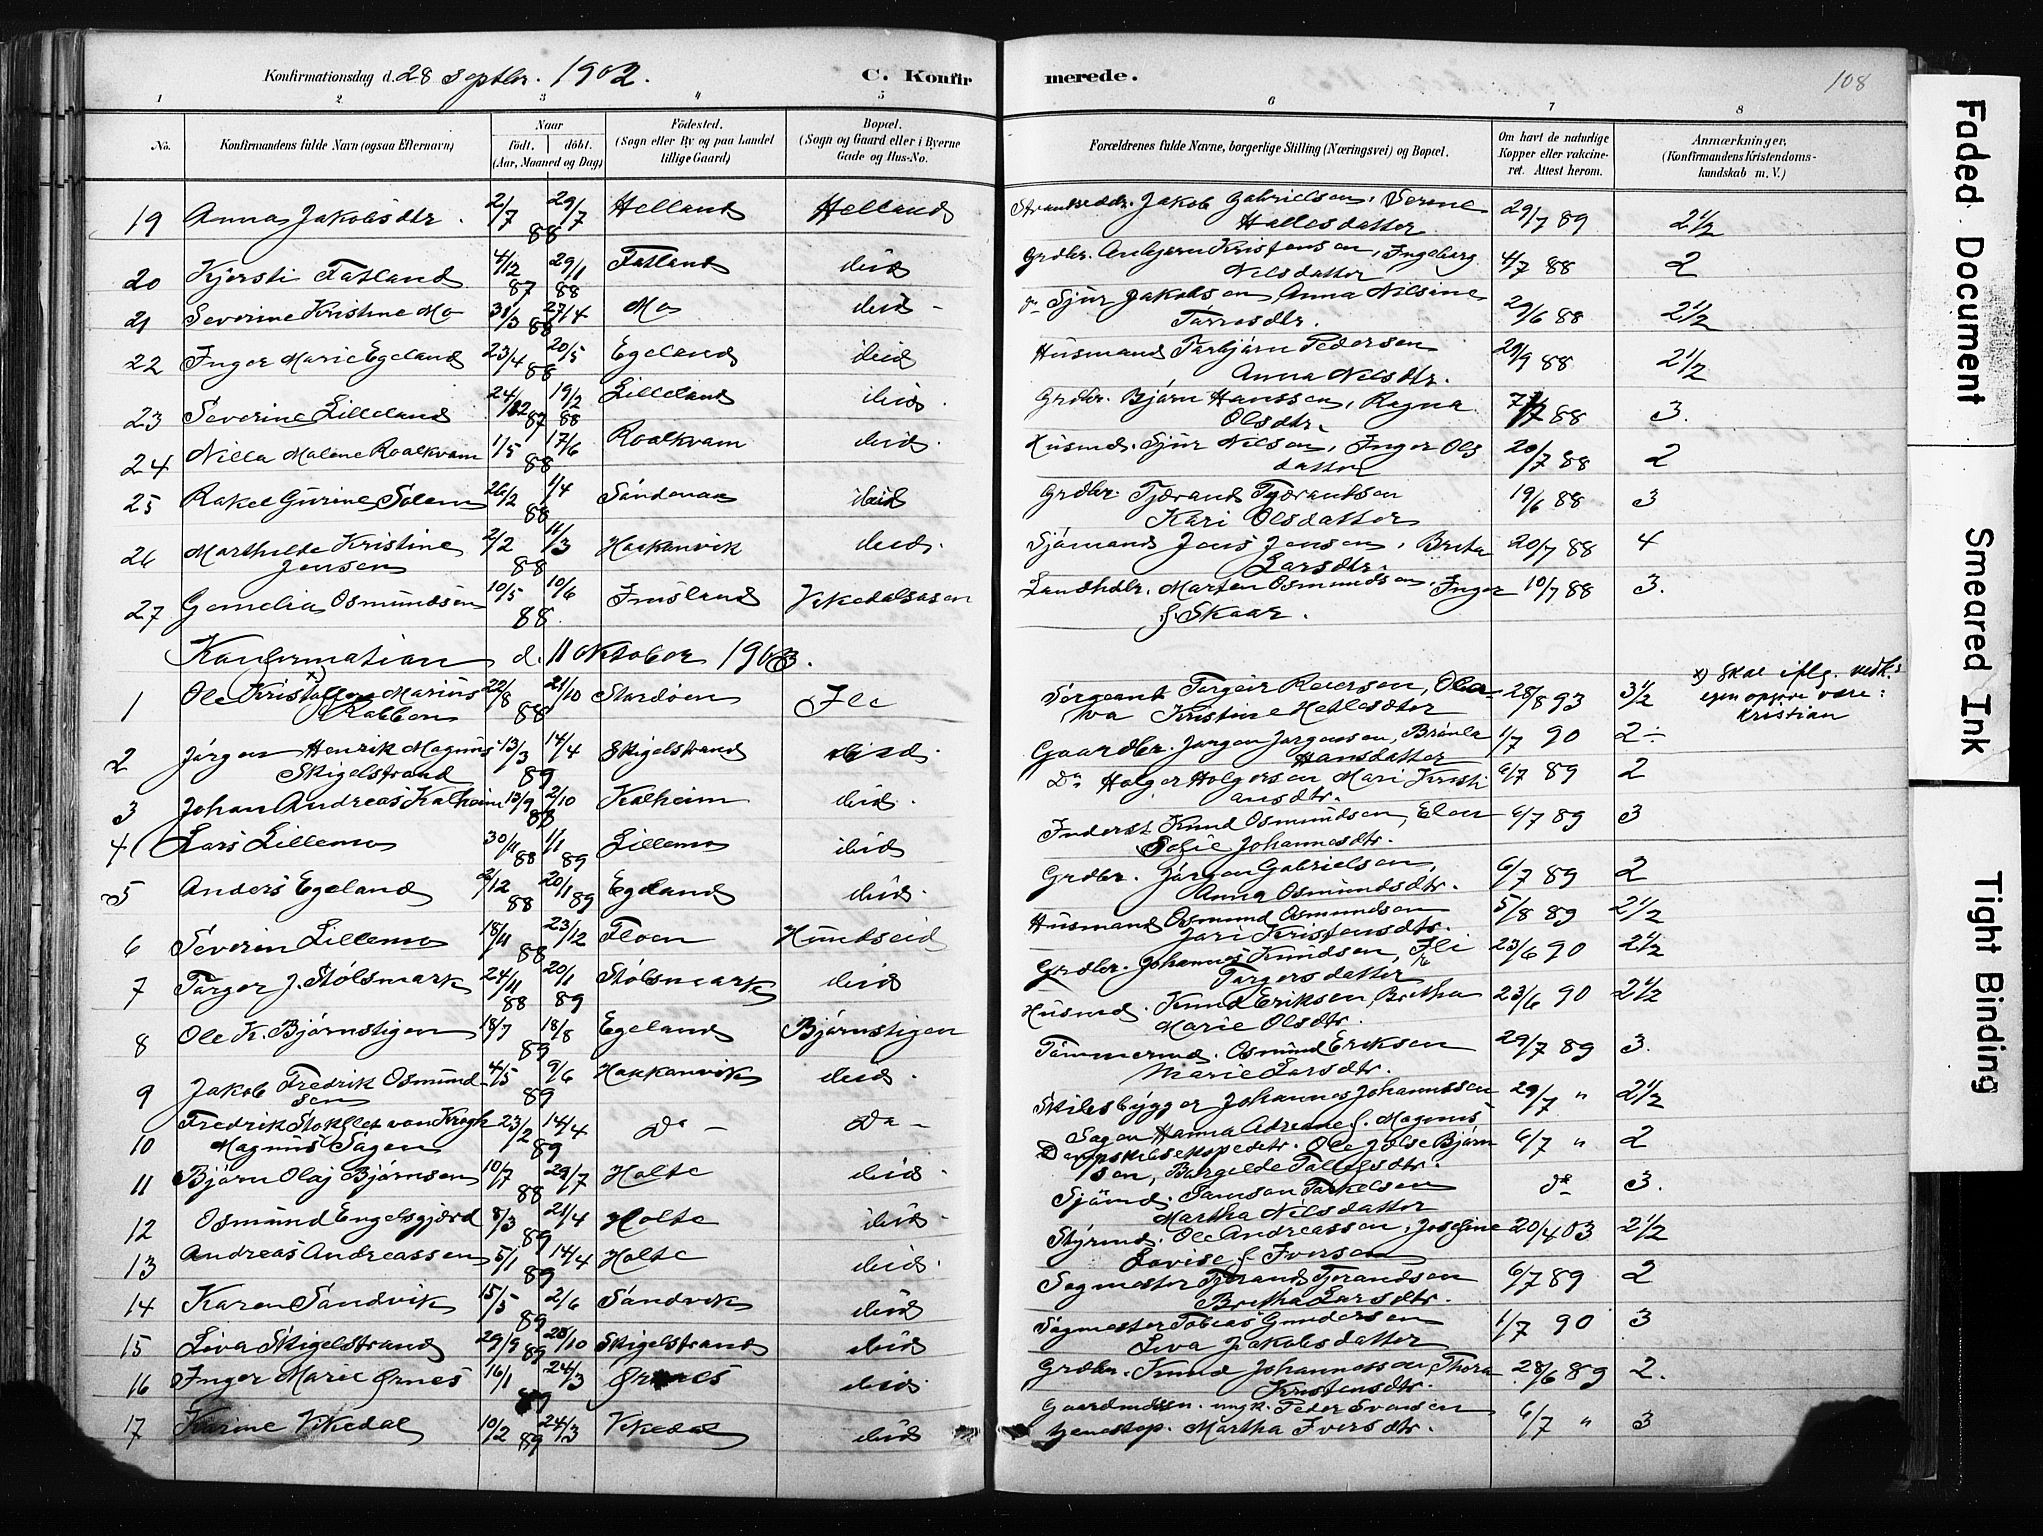 Konfirmationsdag d. 28 Septbr. 1902. C. Konfirmerede. 108
1 2 3 4 5 6 7 8
No. Konfirmandens fulde Navn (ogsaa Efternavn) Naar født. døbt. (Aar, Maaned og Dag) Fødested. (Sogn eller By og paa Landet tillige Gaard) Bopæl. (Sogn og Gaard eller i Byerne Gade og Hus-No.) Forældrenes fulde Navne, borgerlige Stilling (Næringsvei) og Bopæl. Om havt de naturlige Kopper eller vakcineret. Attest herom. Anmærkninger. (Konfirmandens Kristendomskundskab m. V.)
19 Anna Jakobsdtr. 2/7 29/7 88 Helland Helland Jakob Gabrielsen, Serine Hellesdatter 29/7 89 2 1/2
20 Kjersti Fatland 4/12 87 29/1 88 Fatland ibid Grdbr. Anbjørn Kristensen, Ingeborg Nilsdatter 4/7 88 2
21 Severine Kristine Mo 31/3 27/4 88 Mo ibid Do Sjur Jakobsen Anna Nilsine Tørresdtr. 29/6 88 2 1/2
22 Inger Marie Egeland 23/4 20/5 88 Egeland ibid Husmand Torbjørn Pedersen Anna Nilsdtr. 29/9 88 2 1/2
23 Severine Lilleland 24/12 87 19/2 88 Lilleland ibid. Grdbr. Bjørn Hanssen, Ragna Olsdtr. 7/7 88 3.
24 Nilla Malene Roalkvam 1/5 17/6 88 Roalkvam ibid. Husmd. Sjur Nilsen, Inger Olsdatter 20/7 88 2
25 Rakel Gurine Solem 26/2 1/4 88 Søndenaa ibid Grdbr. Tjærand Tjærandsen Kari Olsdatter 19/6 88 3
26 Marthilde Kristine Jensen 2/2 11/3 88 Haakenvik ibid. Sjømand Jens Jensen, Brita Larsdtr. 20/7 88 4
27 Gemelia Osmundsen 10/5 10/6 88 Imsland Vikedalsosen Landhdlr. Morten Osmundsen, Inger f. Skaar. 10/7 88 3.
Konfirmation d. 11 Oktober 1903.
1 Ole Kristoffer x) Marius Rabben 22/8 21/10 88 Stordøen Ile Sergeant Torgeir Reiersen, Oleava Kristine Hetlesdtr 28/8 93 3 1/2 x) Skal iflg. vedk.s egen opgave være: Kristian
2 Jørgen Henrik Magnus Skigelstrand 13/3 14/4 89 Skigelstrand ibid. Gaardbr. Jørgen Jørgensen, Brønla Hansdatter 1/7 90 2÷
3 Johan Andreas Kalheim 13/9 2/10 88 Kalheim ibid. Do Holger Holgersen Mari Kristiansdtr. 6/7 89 2
4 Lars Lillemo 30/11 88 1/1 89 Lillemo ibid Inderst Knud Osmundsen, Elen Sofie Johannesdtr. 6/7 89 3
5 Anders Egeland 2/12 88 20/1 89 Egeland ibid. Grdbr. Jørgen Gabrielsen, Anna Osmundsdtr. 6/7 89 2
6 Severin Lillemo 18/11 23/12 88 Floen Hundseid Husmand Osmund Osmundsen Jari Kristensdtr. 5/8 89 2 1/2
7 Torger J. Stølsmark 24/11 88 20/1 89 Stølsmark ibid Grdbr. Johannes Knudsen, Ili Torgersdatter 23/6 90 2 1/2
8 Ole K. Bjørnstigen 18/7 18/8 89 Egeland Bjørnstigen Husmd. Knud Eriksen, Bretha Marie Olsdtr. 23/6 90 2 1/2
9 Jakob Fredrik Osmundsen 4/5 9/6 89 Haakanvik ibid. Tømmermd. Osmund Eriksen Marie Larsdtr. 29/7 89 3.
10 Fredrik Stoklet von Krogh Magnus Sagen 23/2 14/4 89 Do - Do - Skibsbygger Johannes Johannessen Sagen Hanna Adriane f. Magnus 29/7 " 2 1/2
11 Bjørn Olaj Bjørnsen 10/7 29/7 88 Holte ibid. Dampskibsekspeditr. Ole Johs Bjørnsen, Borgilde Tollefsdtr. 6/7 " 2
12 Osmund Engelsgjærd 8/3 21/4 89 Holte ibid. Sjømd. Samson Torkelsen Martha Nilsdatter do 3.
13 Andreas Andreassen 5/1 14/4 89 Holte ibid. Styrmd. Ole Andreassen, Josefine Lovise f. Iversen 20/4 03 2 1/2
14 Karen Sandvik 15/5 2/6 89 Sandvik ibid Sagmester Tjerand Tjerandsen Bretha Larsdtr. 6/7 89 2
15 Liva Skigelstrand 29/9 20/10 89 Skigelstrand ibid Sagmester Tobias Gundersen Liva Jakobsdatter 1/7 90 3
16 Inger Marie Ørnes 16/1 24/3 89 Ørnes ibid. Grdbr. Knud Johannessen, Thora Kristensdtr. 28/6 89 2.
17 Karine Vikedal 10/2 24/3 89 Vikedal ibid ungk. Peder Svensen Martha Iversdtr. 6/7 " 3
Faded Document
Smeared Ink
Tight Binding